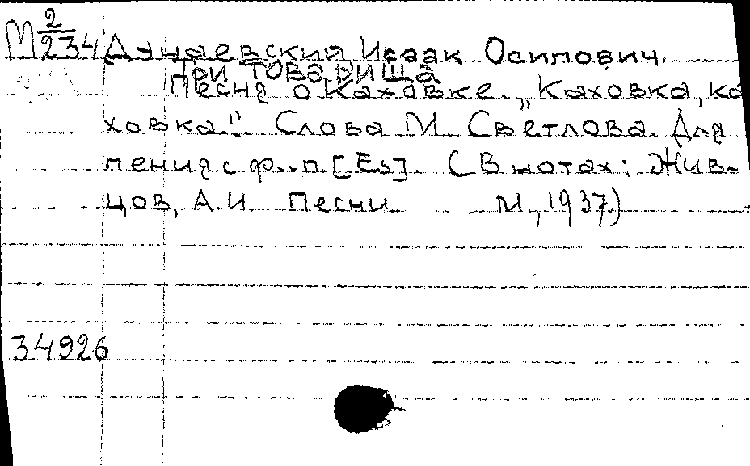 М 2/234 Дунаевский Исаак Осипович.
Три товарища
Песня о Каховке. „Каховка, ка
ховка." Слова М. Светлова. Для
пения с ф.-п. [Es]. (В нотах: Жив-
цов, А.И. Песни. М., 1937.)
34926